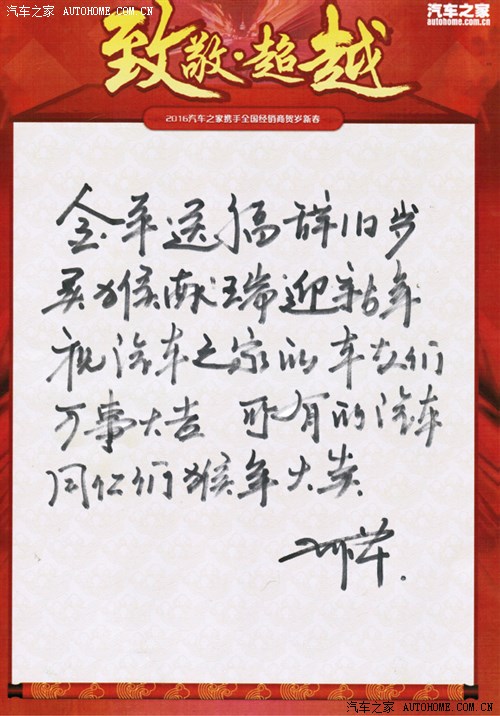 汽车之家 AUTOHOME.COM.CN
汽车之家
autohome.com.cn
致敬·超越
2016汽车之家携手全国经销商贺岁新春
金羊送福辞旧岁
灵猴献瑞迎新年
祝汽车之家的车友们
万事大吉 所有的汽车
同仁们猴年大发
汽车之家 AUTOHOME.COM.CN